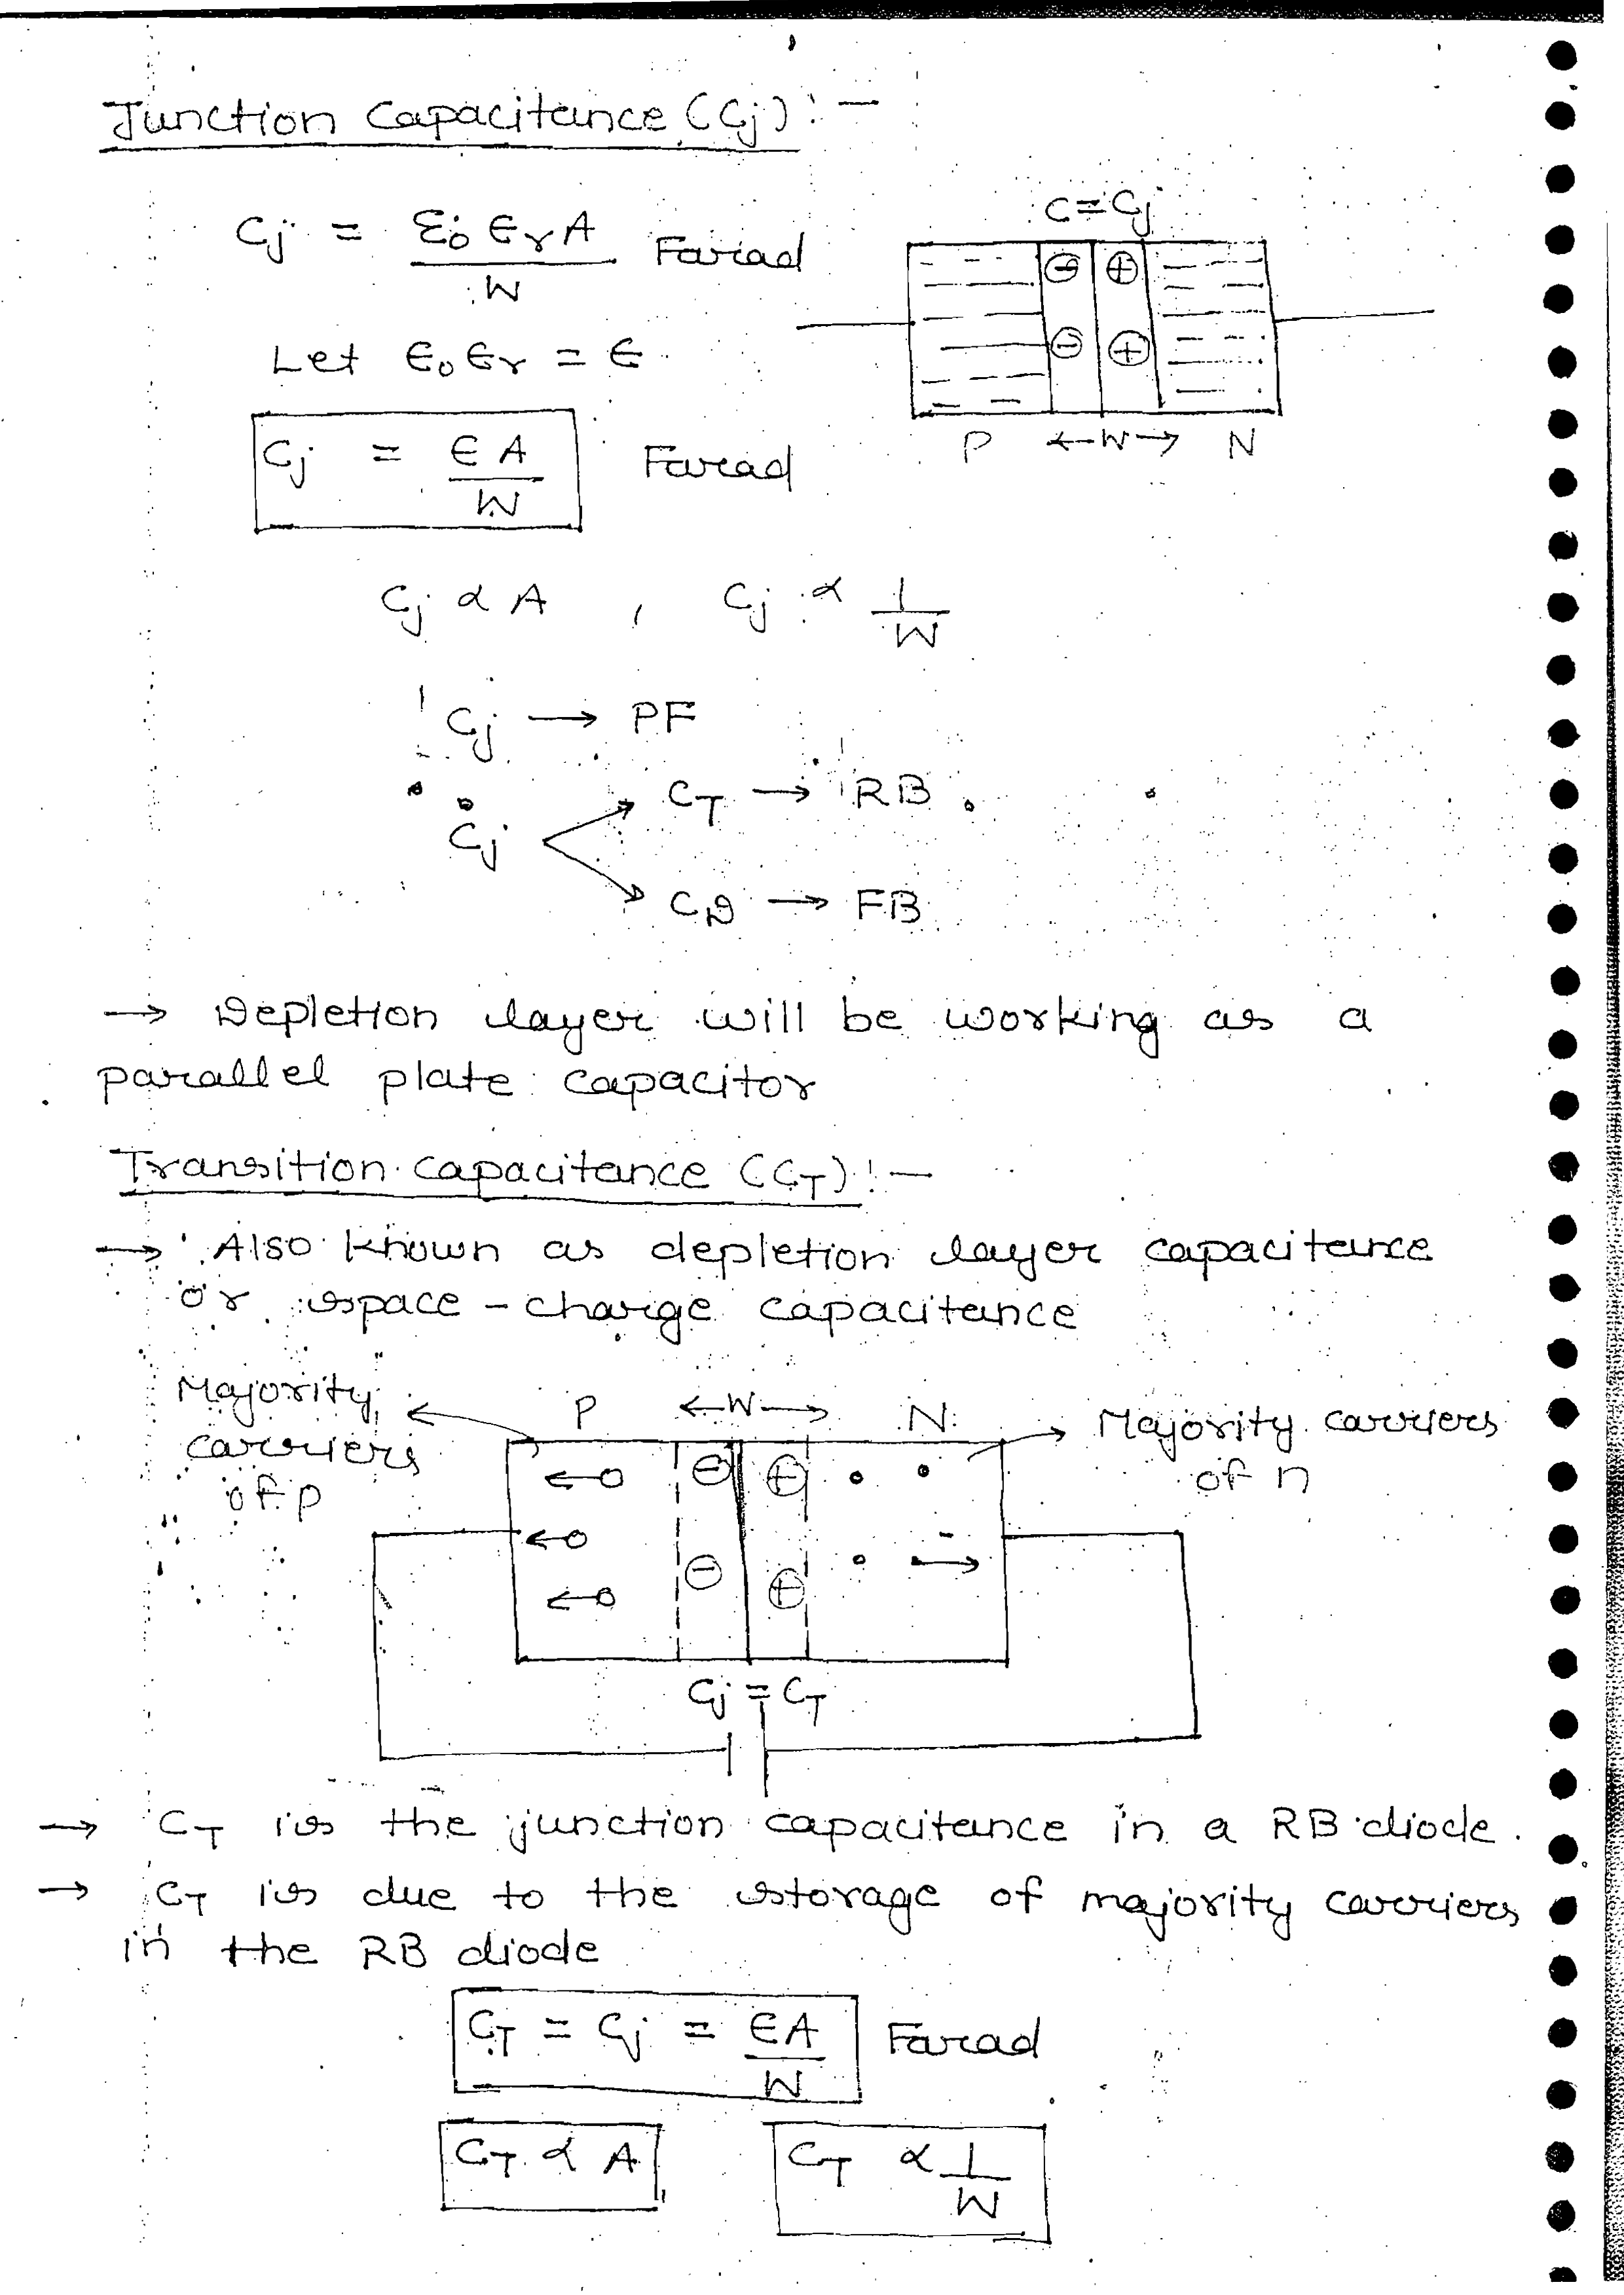 Junction Capacitance (Cj) :-
C = Cj
Cj = ε0 εr A / W Farad
Let ε0 εr = ε
P ←W→ N
Cj = ε A / W Farad
Cj ∝ A , Cj ∝ 1 / W
Cj → PF
Cj → CT → RB
→ CD → FB
→ Depletion layer will be working as a
parallel plate capacitor
Transition capacitance (CT) :-
→ Also known as depletion layer capacitance
or space-charge capacitance
Majority carriers of p
P ←W→ N
Majority carriers of n
Cj = CT
→ CT is the junction capacitance in a RB diode.
→ CT is due to the storage of majority carriers
in the RB diode
CT = Cj = εA / W Farad
CT ∝ A CT ∝ 1 / W